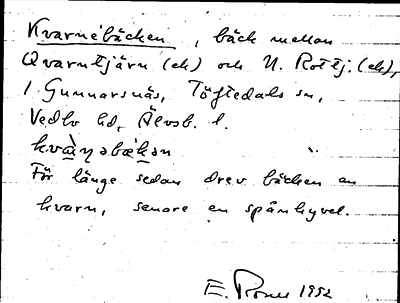 Kvarnebäcken, bäck mellan
Qvarntjärn (ek) och N. Rottj. (ek),
i Gunnarsnäs, Töftedals sn,
Vedbo hd, Älvsb. l.
För länge sedan drev bäcken en
kvarn, senare en spånhyvel.
E. 1952